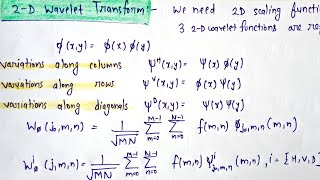 2-D Wavelet Transform:- We need 2D scaling functio
3 2-D wavelet functions are re
ϕ(x,y) = ϕ(x) ϕ(y)
variations along columns ψᴴ(x,y) = ψ(x) ϕ(y)
variations along rows ψⱽ(x,y) = ϕ(x) ψ(y)
variations along diagonals ψᴰ(x,y) = ψ(x) ψ(y)
W_ϕ(j₀,m,n) = 1/√MN Σ_{m=0}^{M-1} Σ_{n=0}^{N-1} f(m,n) ϕ_{j₀,m,n}(m,n)
Wⁱ_ψ(j,m,n) = 1/√MN Σ_{m=0}^{M-1} Σ_{n=0}^{N-1} f(m,n) ψⁱ_{j,m,n}(m,n), i = [H,V,D]